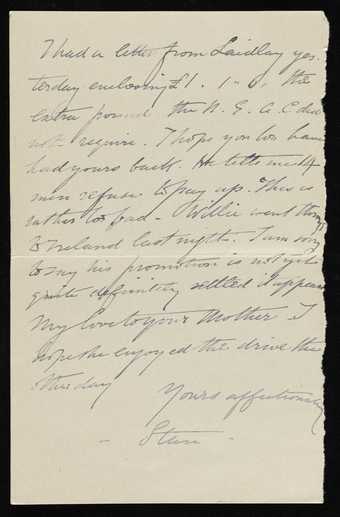 I had a letter from Laidlay yes-
terday enclosing £1. 1-0, the
extra pound the N. E. A. C did
not require. I hope you too have
had yours back. He tells me
men refuse to pay up. This is
rather too bad - Willie went
to Ireland last night. I am sorry
to say his promotion is not yet
quite definitely settled it appears
My love to your Mother I
hope she enjoyed the drive the
other day
Yours affectionately
-       -